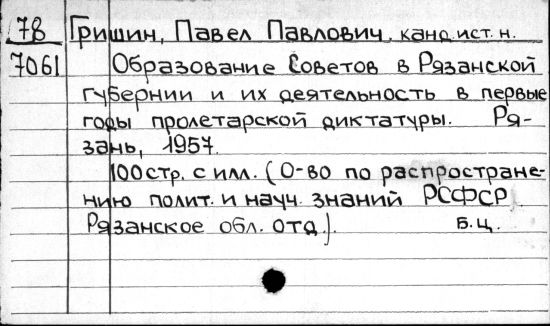 78 Гришин, Павел Павлович, канд. ист. н.
7061 Образование Советов в Рязанской
губернии и их деятельность в первые
годы пролетарской диктатуры. Ря-
зань, 1957.
100 стр. с илл. (О-во по распростране-
нию полит. и науч. знаний РСФСР.
Рязанское обл. отд.). Б.ц.